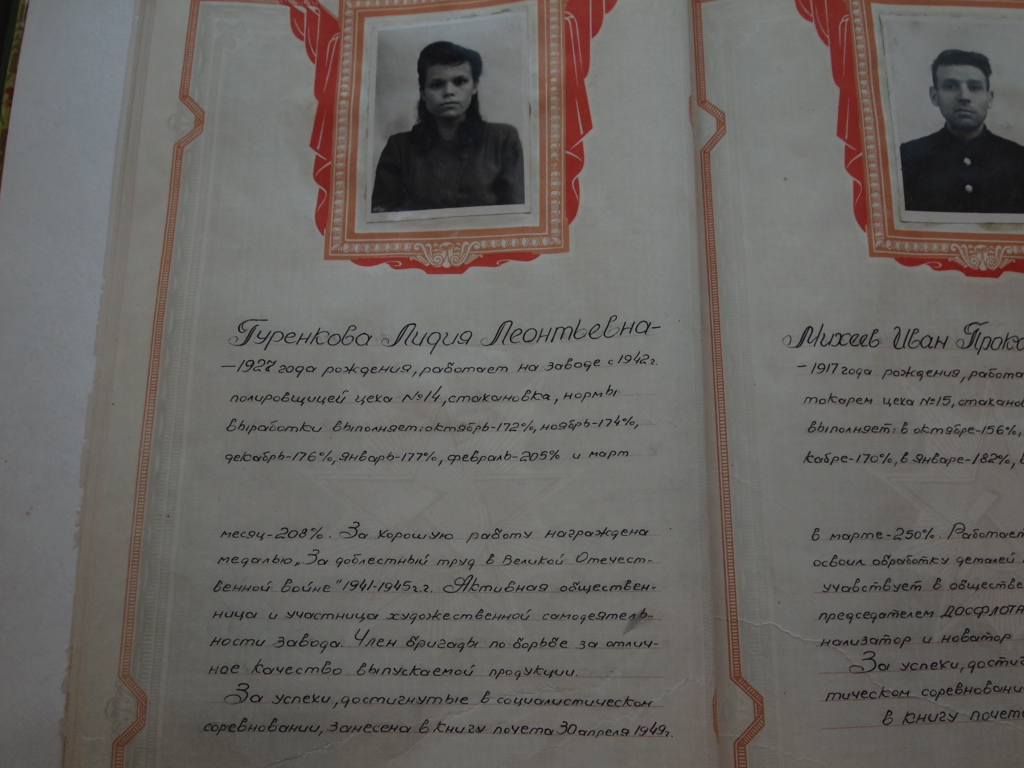 Гуренкова Лидия Леонтьевна-
-1927 года рождения, работает на заводе с 1942 г.
полировщицей цеха №14, стахановка, нормы
выработки выполняет: октябрь-172%, ноябрь-174%,
декабрь-176%, январь-177%, февраль-205% и март
месяц-208%. За хорошую работу награждена
медалью „За доблестный труд в Великой Отечест-
венной войне" 1941-1945 г.г. Активная обществен-
ница и участница художественной самодеятель-
ности завода. Член бригады по борьбе за отлич-
ное качество выпускаемой продукции.
За успехи, достигнутые в социалистическом
соревновании, занесена в книгу почета 30 апреля 1949 г.
Михеев Иван
-1917 года рождения, работа
токарем цеха №15, стахано
выполняет: в октябре-156%,
кабре-170%, в январе-182%, в
в марте-250%. Работает
освоил обработку деталей
учавствует в обществе
председателем ДОСФЛОТА
нализатор и новатор
За успехи, достиг
тическом соревновани
в книгу почета